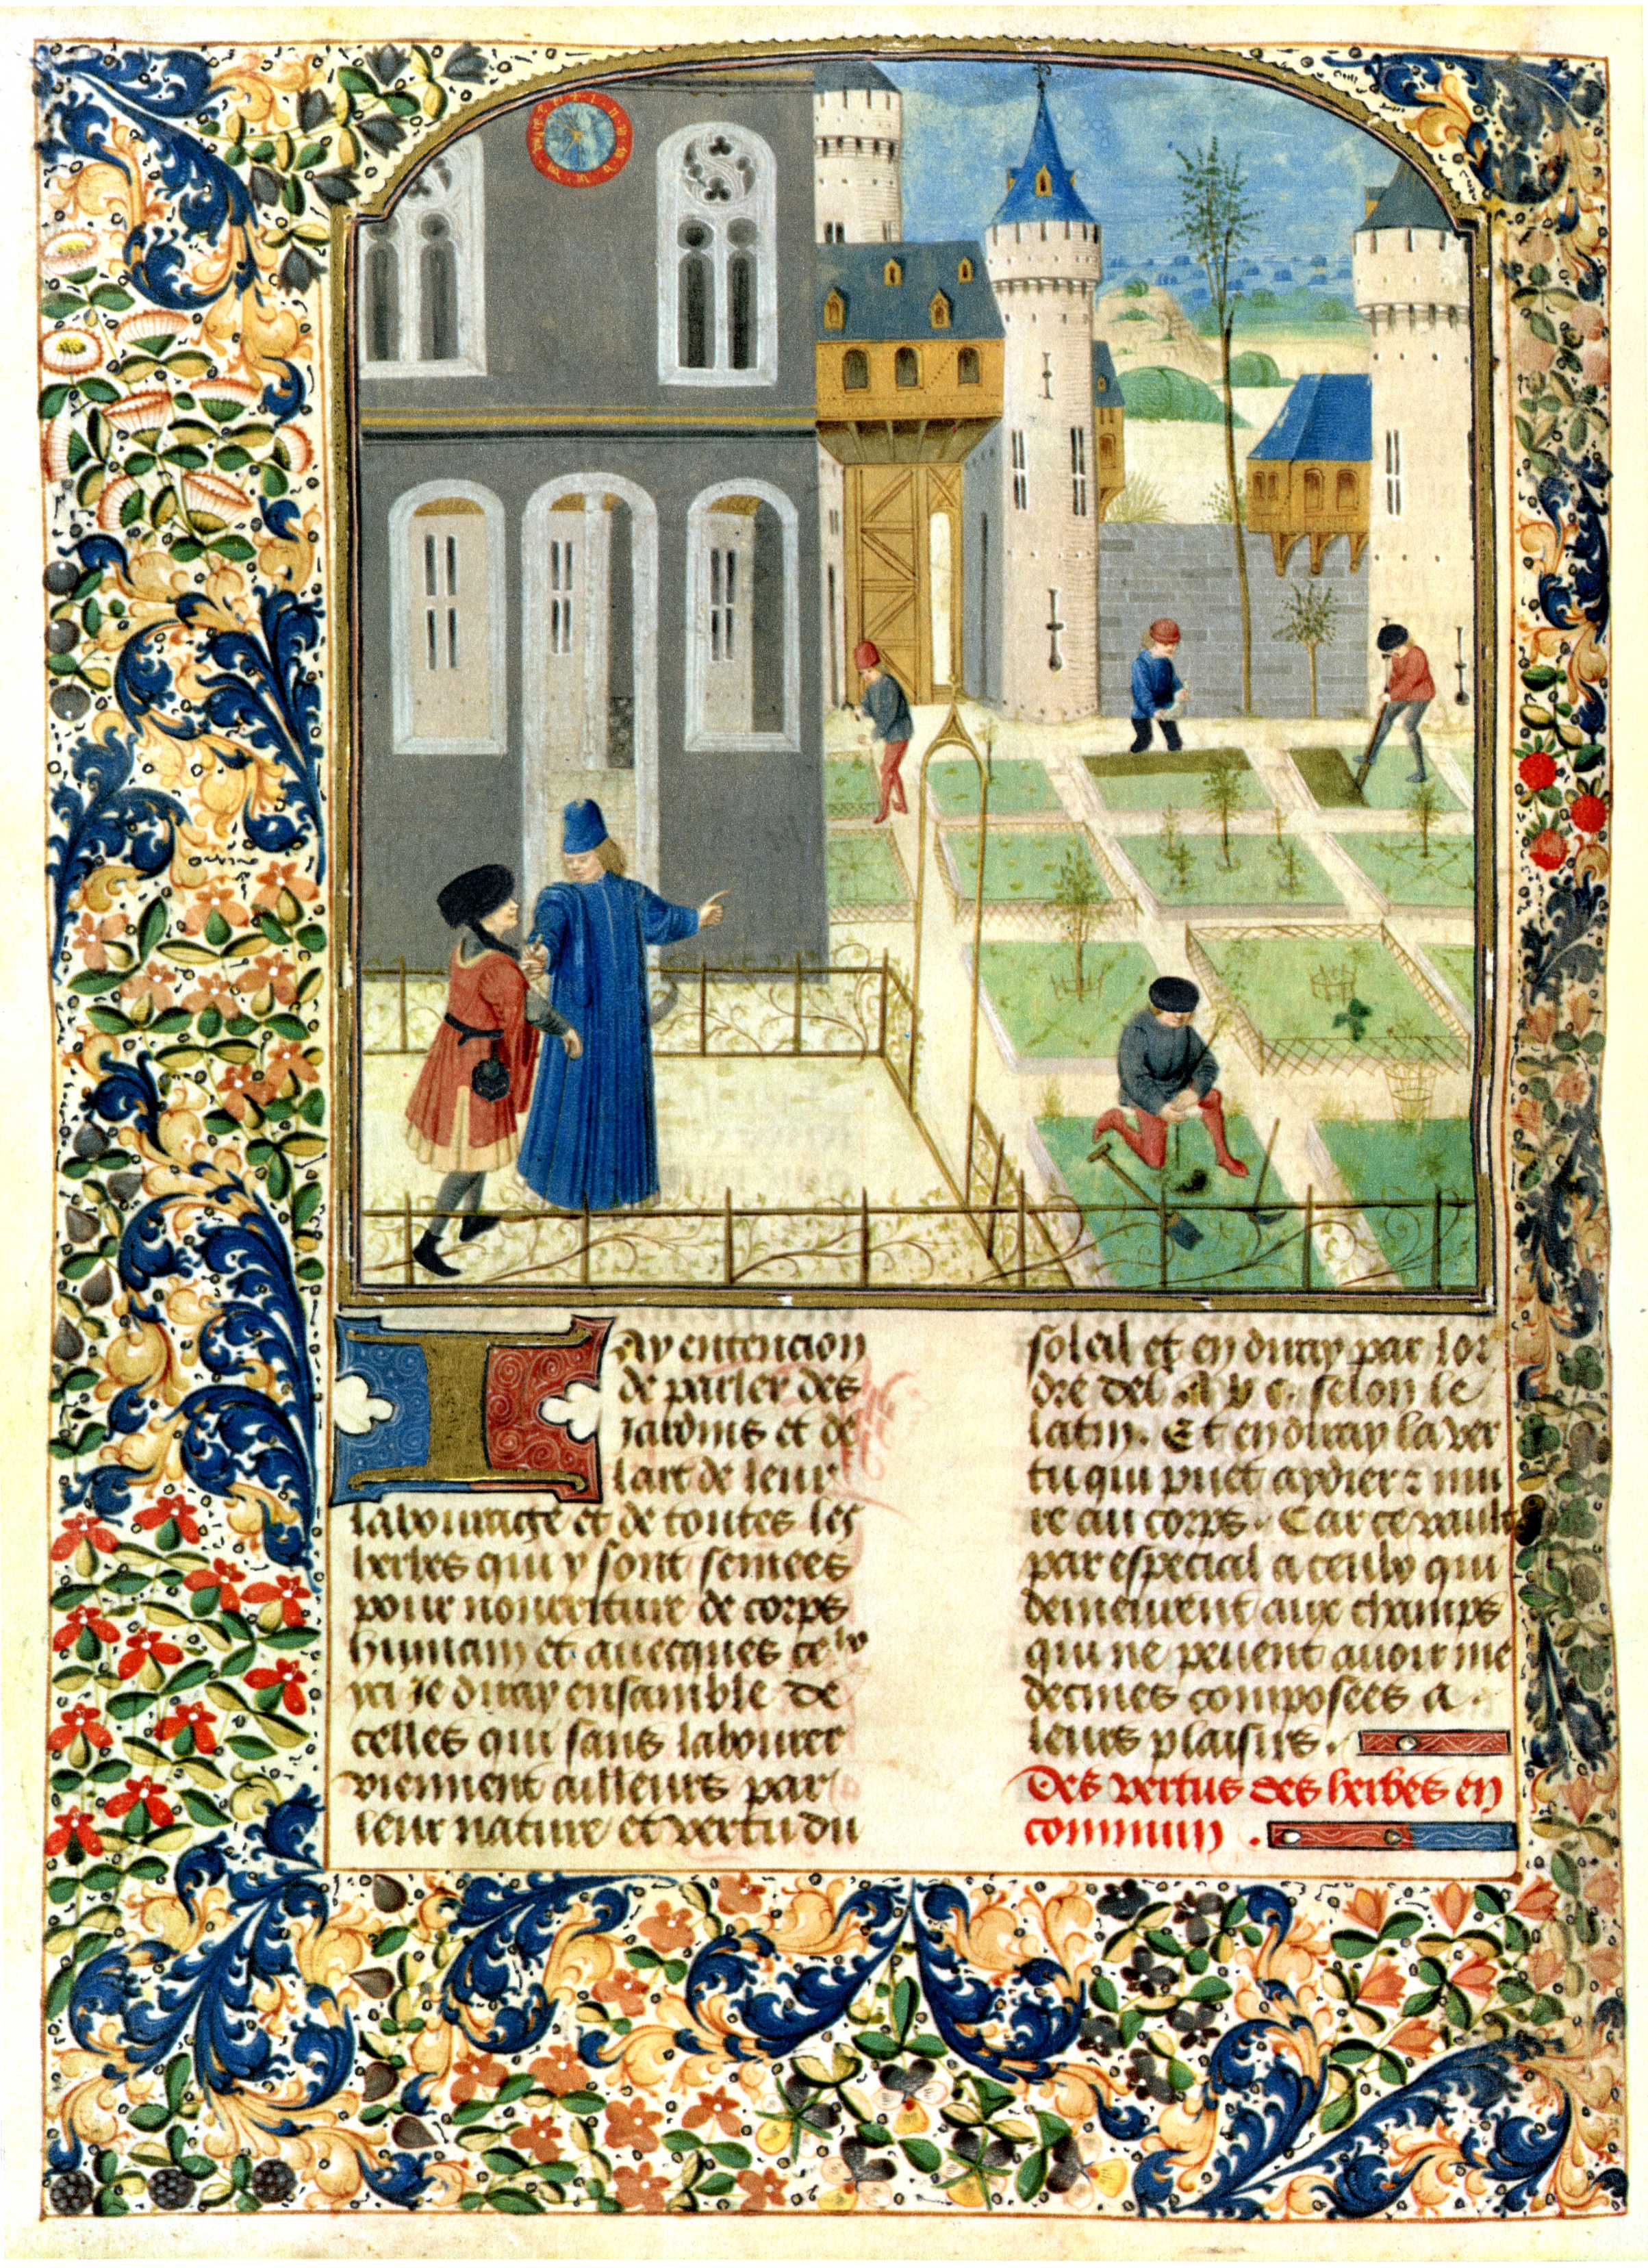 Jay entencion
de parler des
Jardins et de
lart de leur
labourage et de toutes les
herbes qui y sont semees
pour nourriture de corps
humain et auecques ce
Je diray ensamble de
celles qui sans labourer
viennent ailleurs par
leur nature et vertu du
soleil et en diray par lor
dre del A b c. selon le
latin. Et en diray la ver
tu qui puet aydier & nui
re au corps. Car ce vault
par especial a ceulx qui
demeurent aux champs
qui ne peuent auoir me
decines composees a
leurs plaisirs.
Des vertus des herbes en
commun.